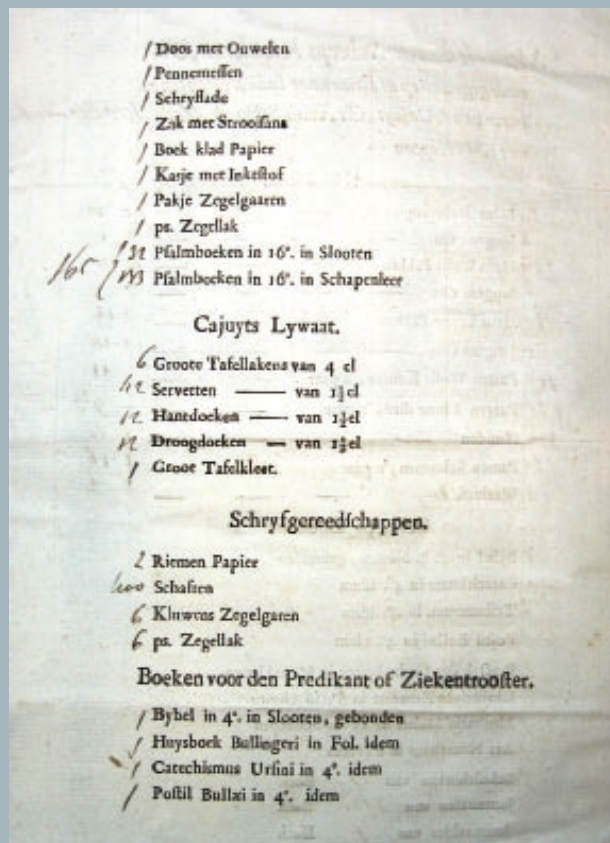 / Doos met Ouwelen
/ Pennemessen
/ Schryflade
/ Zak met Strooisand
/ Boek klad Papier
/ Kasje met Inkestof
/ Pakje Zegelgaaren
/ ps. Zegellak
32 Psalmboeken in 16°. in Slooten
165 133 Psalmboeken in 16°. in Schapenleer
Cajuyts Lywaat.
6 Groote Tafellakens van 4 el
Servetten —— van 1¼ el
12 Hantdoeken —— van 1¾ el
12 Droogdoeken — van 1¾ el
1 Groot Tafelkleet.
Schryfgereedschappen.
2 Riemen Papier
Schaften
6 Kluwens Zegelgaren
6 ps. Zegellak
Boeken voor den Predikant of Ziekentrooster.
/ Bybel in 4°. in Slooten, gebonden
/ Huysboek Bullingeri in Fol. idem
/ Catechismus Ursini in 4°. idem
/ Postil Bullæi in 4°. idem